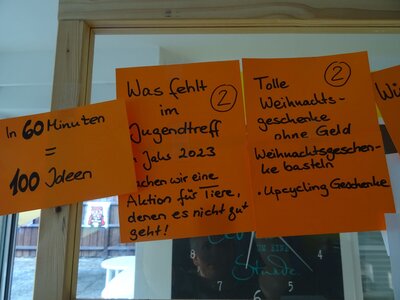 In 60 Minuten
=
100 Ideen
Was fehlt
im
Jugendtreff
2
Jahr 2023
machen wir eine
Aktion für Tiere,
denen es nicht gut
geht!
Tolle
2
Weihnachts-
geschenke
ohne Geld
Weihnachtsgeschen-
ke basteln
• Upcycling Geschenke
Stunde